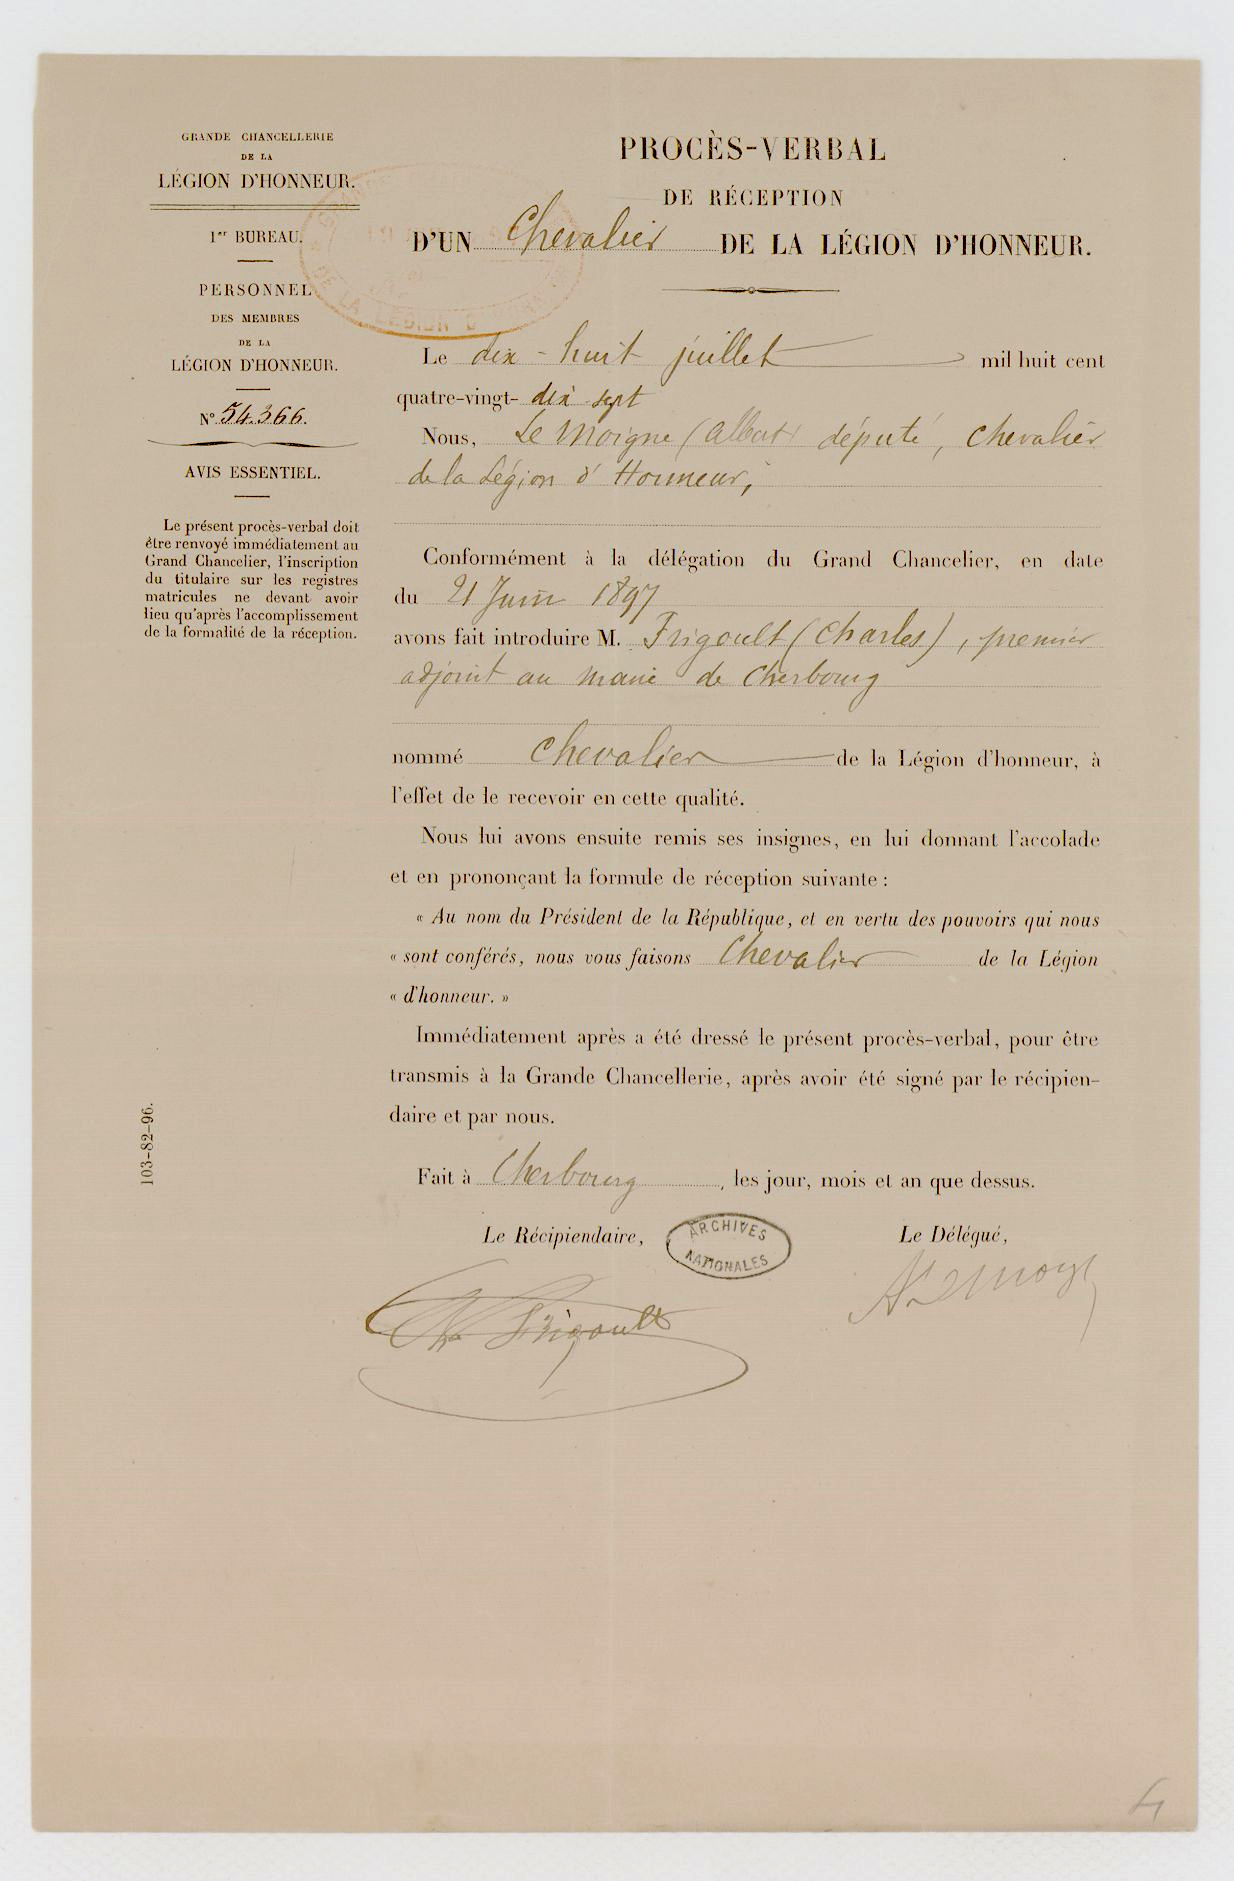 GRANDE CHANCELLERIE
DE LA
LÉGION D'HONNEUR.
1er BUREAU.
PERSONNEL
DES MEMBRES
DE LA
LÉGION D'HONNEUR.
N° 54.366.
AVIS ESSENTIEL.
Le présent procès-verbal doit
être renvoyé immédiatement au
Grand Chancelier, l'inscription
du titulaire sur les registres
matricules ne devant avoir
lieu qu'après l'accomplissement
de la formalité de la réception.
103-82-96.
PROCÈS-VERBAL
DE RÉCEPTION
D'UN Chevalier DE LA LÉGION D'HONNEUR.
DE LA LÉGION D'HONNEUR
Le dix-huit juillet mil huit cent
quatre-vingt-dix sept
Nous, Le Moigne (Albert) député, chevalier
de la Légion d'Honneur,
Conformément à la délégation du Grand Chancelier, en date
du 21 Juin 1897
avons fait introduire M. Frigoult (Charles), premier
adjoint au maire de Cherbourg
nommé chevalier de la Légion d'honneur, à
l'effet de le recevoir en cette qualité.
Nous lui avons ensuite remis ses insignes, en lui donnant l'accolade
et en prononçant la formule de réception suivante :
« Au nom du Président de la République, et en vertu des pouvoirs qui nous
« sont conférés, nous vous faisons Chevalier de la Légion
« d'honneur. »
Immédiatement après a été dressé le présent procès-verbal, pour être
transmis à la Grande Chancellerie, après avoir été signé par le récipien-
daire et par nous.
Fait à Cherbourg, les jour, mois et an que dessus.
Le Récipiendaire,
ARCHIVES
NATIONALES
Le Délégué,
Ch Frigoult
A Lemoigne
4